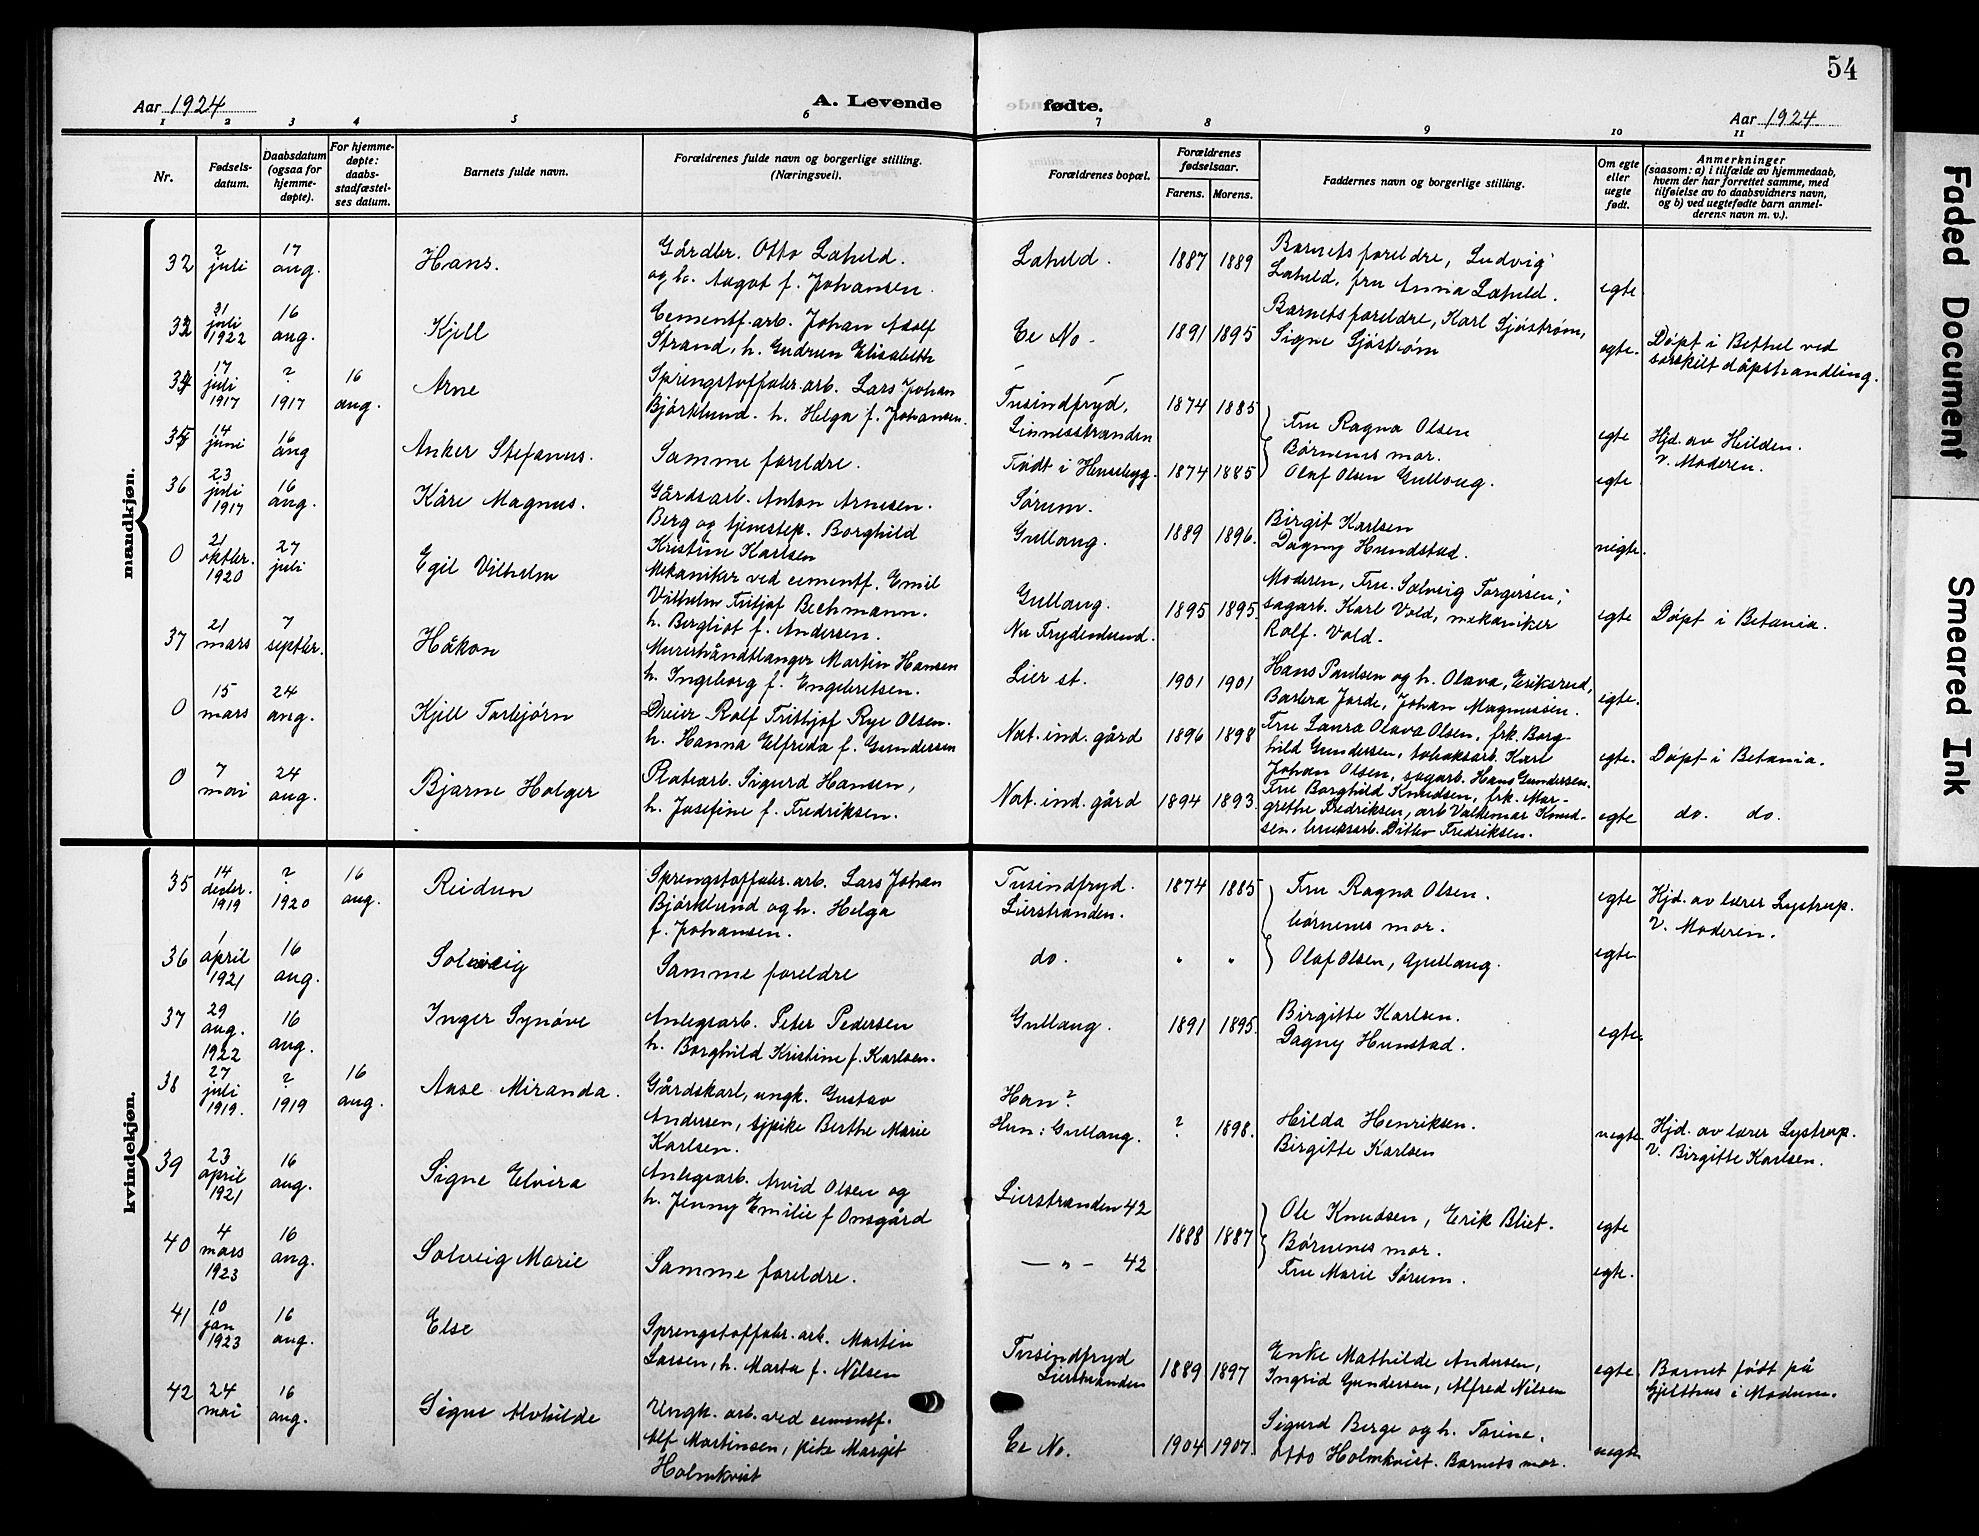 54
Aar 1924
A. Levende
fødte.
Aar 1924
1 2 3 4 5 6 7 8 9 10 11
Nr.
Fødsels-
datum.
Daabsdatum
(ogsaa for
hjemme-
døpte).
For hjemme-
døpte:
daabs-
stadfæstel-
ses datum.
Barnets fulde navn.
Forældrenes fulde navn og borgerlige stilling.
(Næringsvei).
Forældrenes bopæl.
Forældrenes
fødselsaar.
Farens. Morens.
Faddernes navn og borgerlige stilling.
Om egte
eller
uegte
født.
Anmerkninger
(saasom: a) i tilfælde av hjemmedaab,
hvem der har forrettet samme, med
tilføielse av to daabsvidners navn,
og b) ved uegtefødte barn anmel-
derens navn m. v.).
mandkjøn.
32
2
juli
17
aug.
Hans.
Gårdbr. Otto Laheld.
og h. Aagot f. Johansen.
Laheld.
1887 1889
Barnets foreldre, Ludvig
Laheld, fru Anna Laheld.
egte
33
31
juli
1922
16
aug.
Kjell
Cementf. arb. Johan Adolf
Strand, h. Gudrun Elisabeth
Ee No.
1891 1895
Barnets foreldre, Karl Sjøstrøm,
Signe Sjøstrøm
egte.
Døpt i Bethel ved
særskilt dåpshandling.
34
17
juli
1917
?
1917
16
aug.
Arne
Sprengstoffabr. arb. Lars Johan
Bjørklund. h. Helga f. Johansen.
Tusindfryd,
Linnesstranden
1874 1885
Fru Ragna Olsen
Børnenes mor.
egte
Hjd. av Heilden.
v. Moderen.
35
14
juni
16
aug
Anker Stefanus.
Samme foreldre.
Født i
1874 1885
Olaf Olsen Gullaug.
egte
36
23
juli
1917
16
aug.
Kåre Magnus.
Gårdsarb. Anton Arnesen.
Berg og tjenstep. Borghild
Kristine Karlsen
Sørum.
Gullaug.
1889 1896.
Birgit Karlsen
Dagny Hundstad.
uegte.
0
21
oktbr.
1920
27
juli
Egil Vilhelm
Mekaniker ved cementf. Emil
Vilhelm Fritjof Bechmann.
h. Bergliot f. Andersen.
Gullaug.
Nu Frydenlund.
1895 1895.
Moderen, Fru. Solveig Torgersen,
sagarb. Karl Vold, mekaniker
Rolf. Vold.
egte
Døpt i Betania.
37
21
mars
7
septbr.
Håkon
Murerhåndtlanger Martin Hansen
h. Ingeborg f. Engebretsen.
Lier st.
1901 1901
Hans Paulsen og h. Olava, Eriksrud,
Barbra Jorde, Johan Magnussen.
egte.
0
15
mars
24
aug.
Kjell Torbjørn
Dreier Rolf Frithjof Rye Olsen.
h. Hanna Elfrida f. Gundersen
Nat. ind. gård
1896 1898
Fru Laura Olava Olsen, frk. Borg-
hild Gundersen, tobaksarb. Karl
Johan Olsen, sagarb. Hans Gundersen.
egte.
Døpt i Betania.
0
7
mai
24
aug.
Bjarne Holger
Platearb. Sigurd Hansen,
h. Josefine f. Fredriksen.
Nat. ind. gård
1894 1893.
Fru Borghild Knudsen, frk. Mar-
grethe Fredriksen, arb Valdemar Knud-
sen, bruksarb. Ditlev Fredriksen.
egte
do. do.
kvindekjøn.
35
14
desbr.
1919
?
1920
16
aug.
Reidun
Sprengstoffabr. arb. Lars Johan
Bjørklund og h. Helga
f. Johansen.
Tusindfryd.
Lierstranden.
1874 1885
Fru Ragna Olsen.
børnenes mor.
egte
Hjd. av lærer Lystrup.
V. Moderen.
36
1
april
1921
16
aug.
Solveig
Samme foreldre
do.
" "
Olaf Olsen, Gullaug.
egte
37
29
aug.
1922
16
aug.
Inger Synøve
Anlegsarb. Peter Pedersen
h. Borghild Kristine f. Karlsen.
Gullaug.
1891 1895.
Birgitte Karlsen.
Dagny Hunstad.
egte.
38
27
juli
1919.
?
1919
16
aug.
Aase Miranda.
Gårdskarl, ungk. Gustav
Andersen, tjpike Berthe Marie
Karlsen.
Han?
Hun: Gullaug.
? 1898.
Hilda Henriksen.
Birgitte Karlsen
uegte.
Hjd. av lærer Lystrup.
V. Birgitte Karlsen.
39
23
april
1921
16
aug.
Signe Elvira
Anlegsarb. Arvid Olsen og
h. Jenny Emilie f Onsgård
Lierstranden 42
1888 1887
Ole Knudsen, Erik Bliet.
Børnenes mor.
egte
40
4
mars
1923
16
aug.
Solveig Marie
Samme foreldre.
— " — 42
Fru Marie Sørum.
egte.
41
10
jan
1923
16
aug.
Else
Sprengstoffabr. arb. Martin
Larsen, h. Marta f. Nilsen
Tusindfryd
Lierstranden
1889 1897
Enke Mathilde Andersen,
Ingrid Gundersen, Alfred Nilsen
egte.
Barnet født på
Gjelthus i Modum.
42
24
mai
16
aug.
Signe Alvhilde
Ungk. arb. ved cementf.
Alf Martinsen, pike Margit
Holmkvist
Ee No.
1904 1907.
Sigurd Berge og h. Torine.
Otto Holmkvist. Barnets mor.
uegte
Faded Document
Smeared Ink